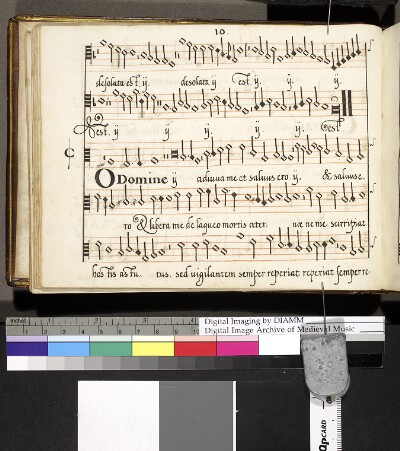 10.
desolata est ij. desolata ij est ij. ij. ij.
est. ij ij. ij. ij. ij. est
O Domine ij adiuua me et saluus ero ij. & saluus e.
ro & libera me de laqueo mortis ater. næ ne me surripiat
hostis astu. tus. sed uigilantem semper reperiat reperiat semper re
inches 1 2
Digital Imaging by DIAMM
Digital Image Archive of Medieval Music
OpCARD